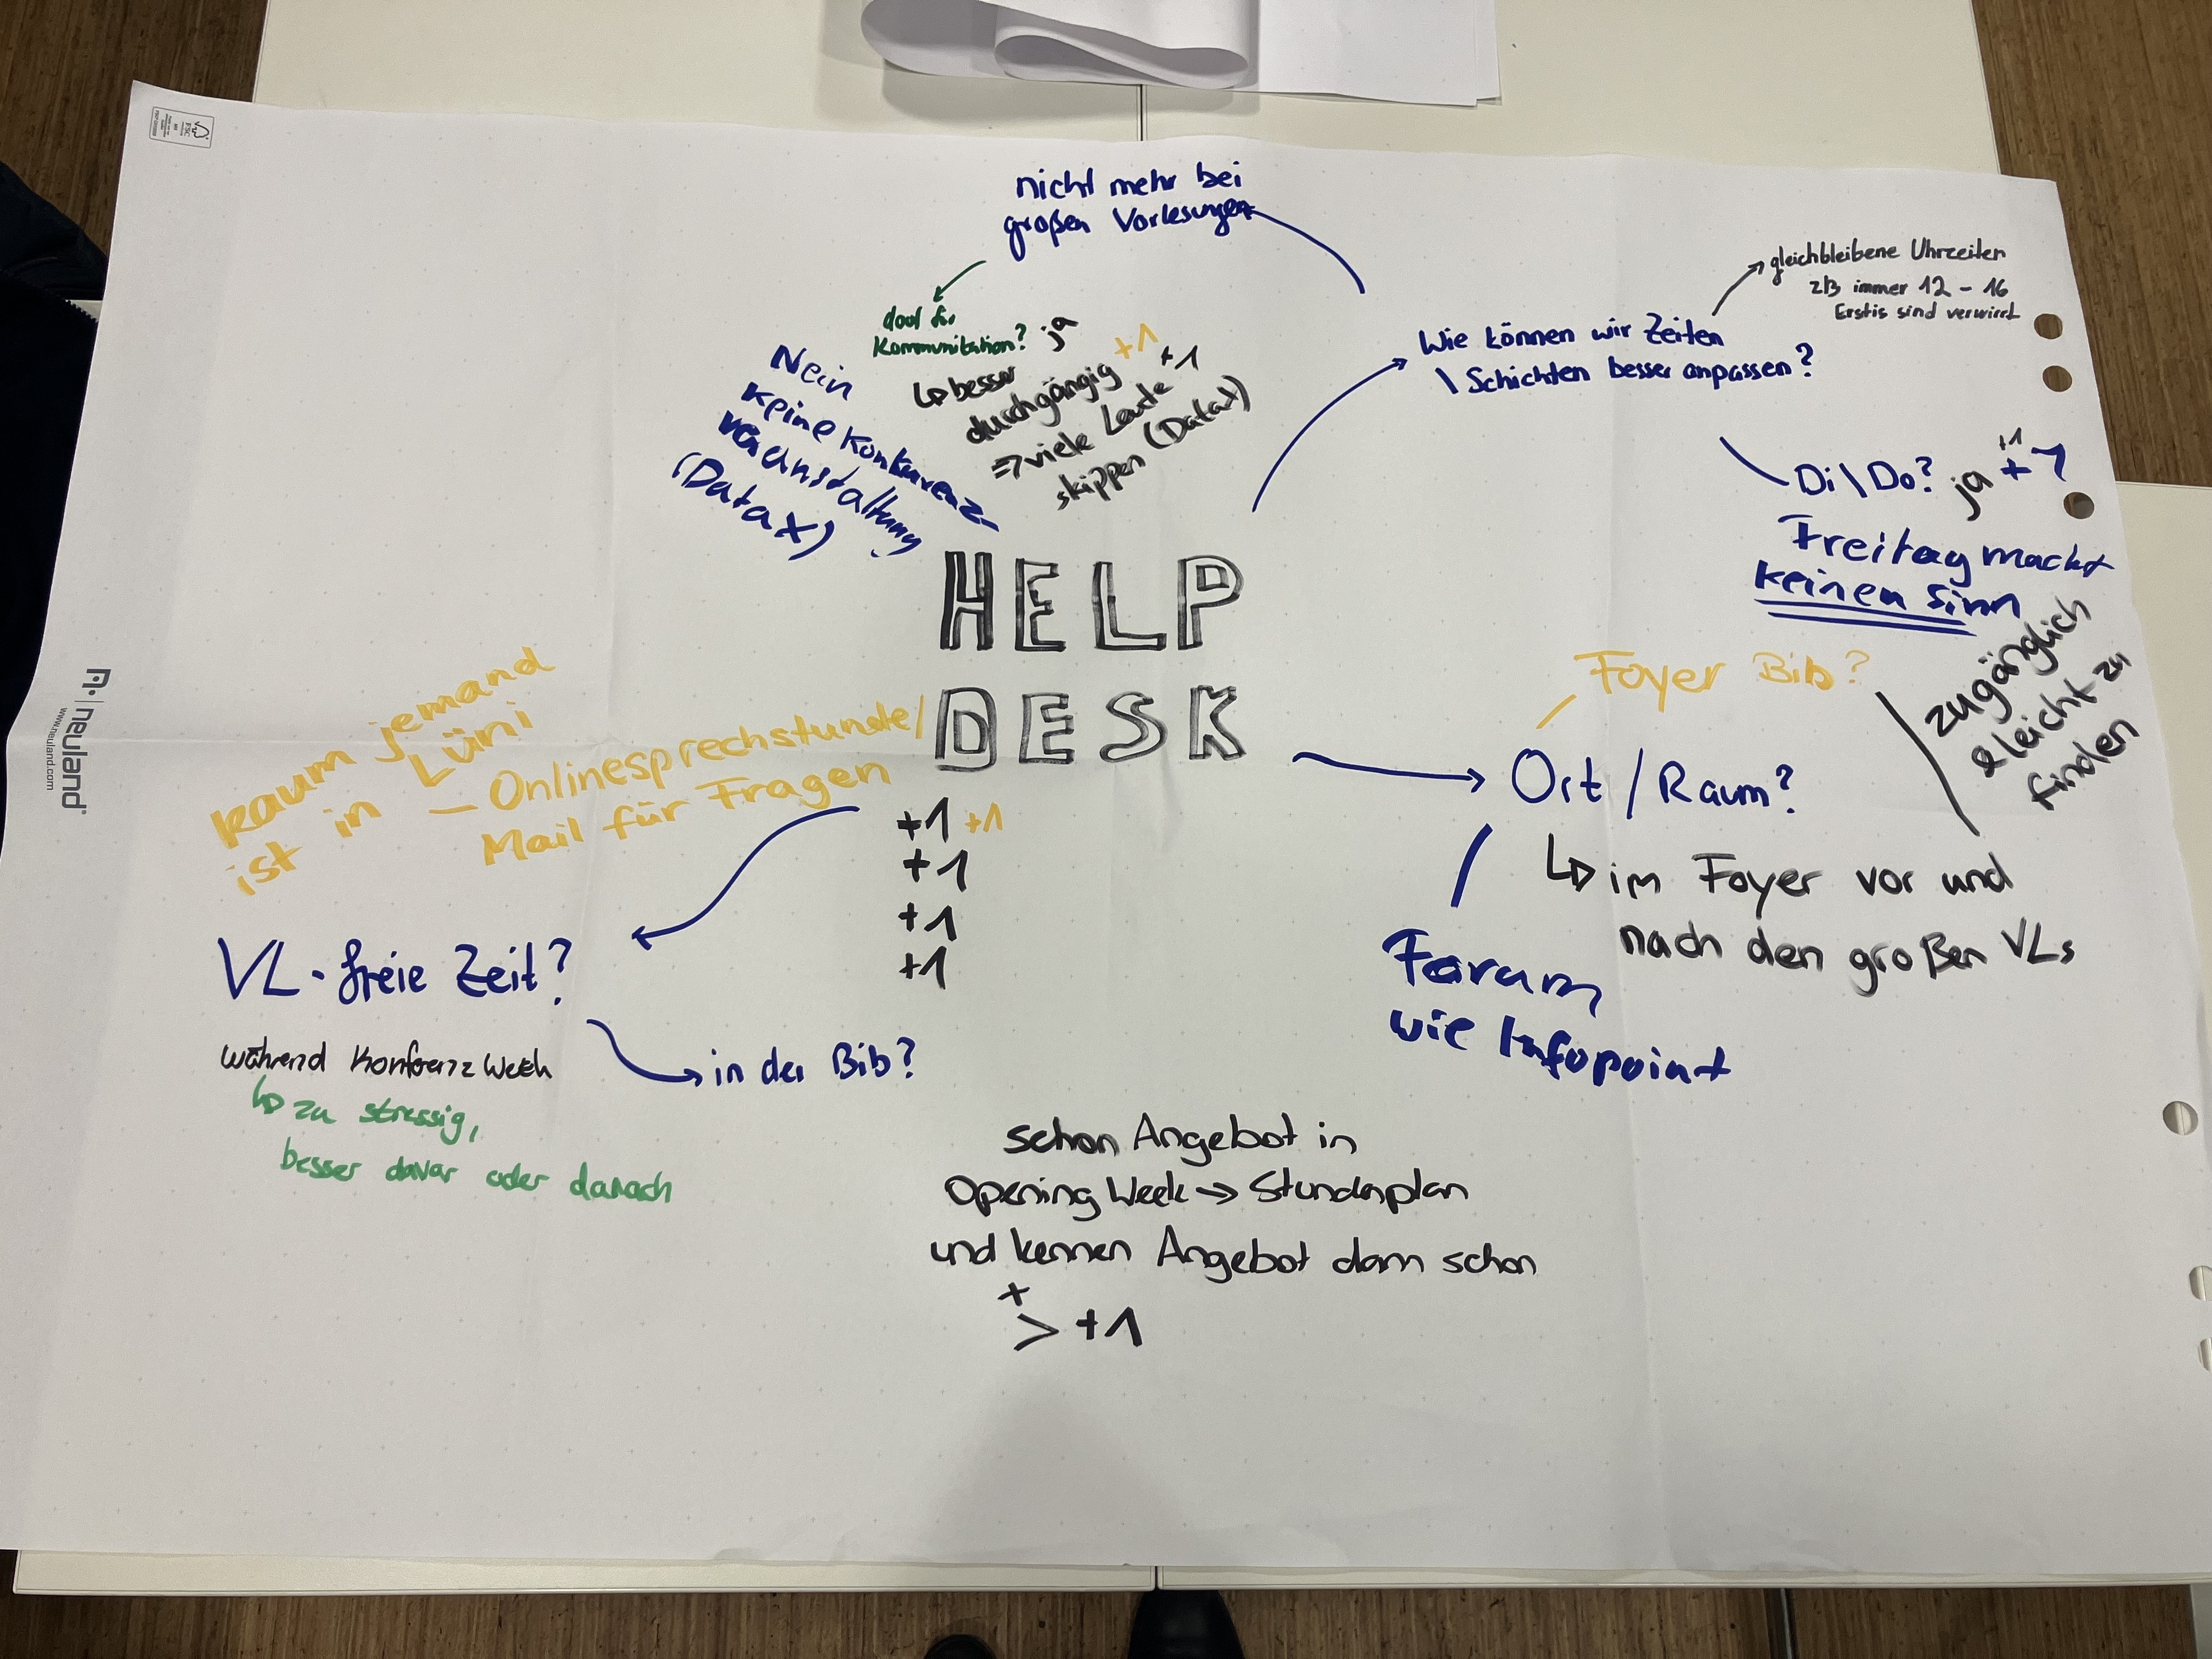 nicht mehr bei
großen Vorlesungen
doof für
Kommunikation? ja
↳ besser
durchgängig +1
⇒ viele Leute +1
skippen (DataX)
Nein
keine Konkurrenz-
veranstaltung
(DataX)
Wie können wir Zeiten
\ Schichten besser anpassen?
→ gleichbleibene Uhrzeiten
z/B immer 12 - 16
Erstis sind verwirrt
Di\Do? ja +1
+1
Freitag macht
keinen Sinn
HELP
DESK
Foyer Bib?
zugänglich
& leicht zu
finden
Ort / Raum?
↳ im Foyer vor und
nach den großen VLs
Forum
wie Infopoint
kaum jemand
ist in Lüni
- Onlinesprechstunde/
Mail für Fragen
+1 +1
+1
+1
+1
VL-freie Zeit?
während Konferenz Week
↳ zu stressig,
besser davor oder danach
in der Bib?
schon Angebot in
Opening Week → Stundenplan
und kennen Angebot dann schon
+
> +1
neuland
www.neuland.com
FSC